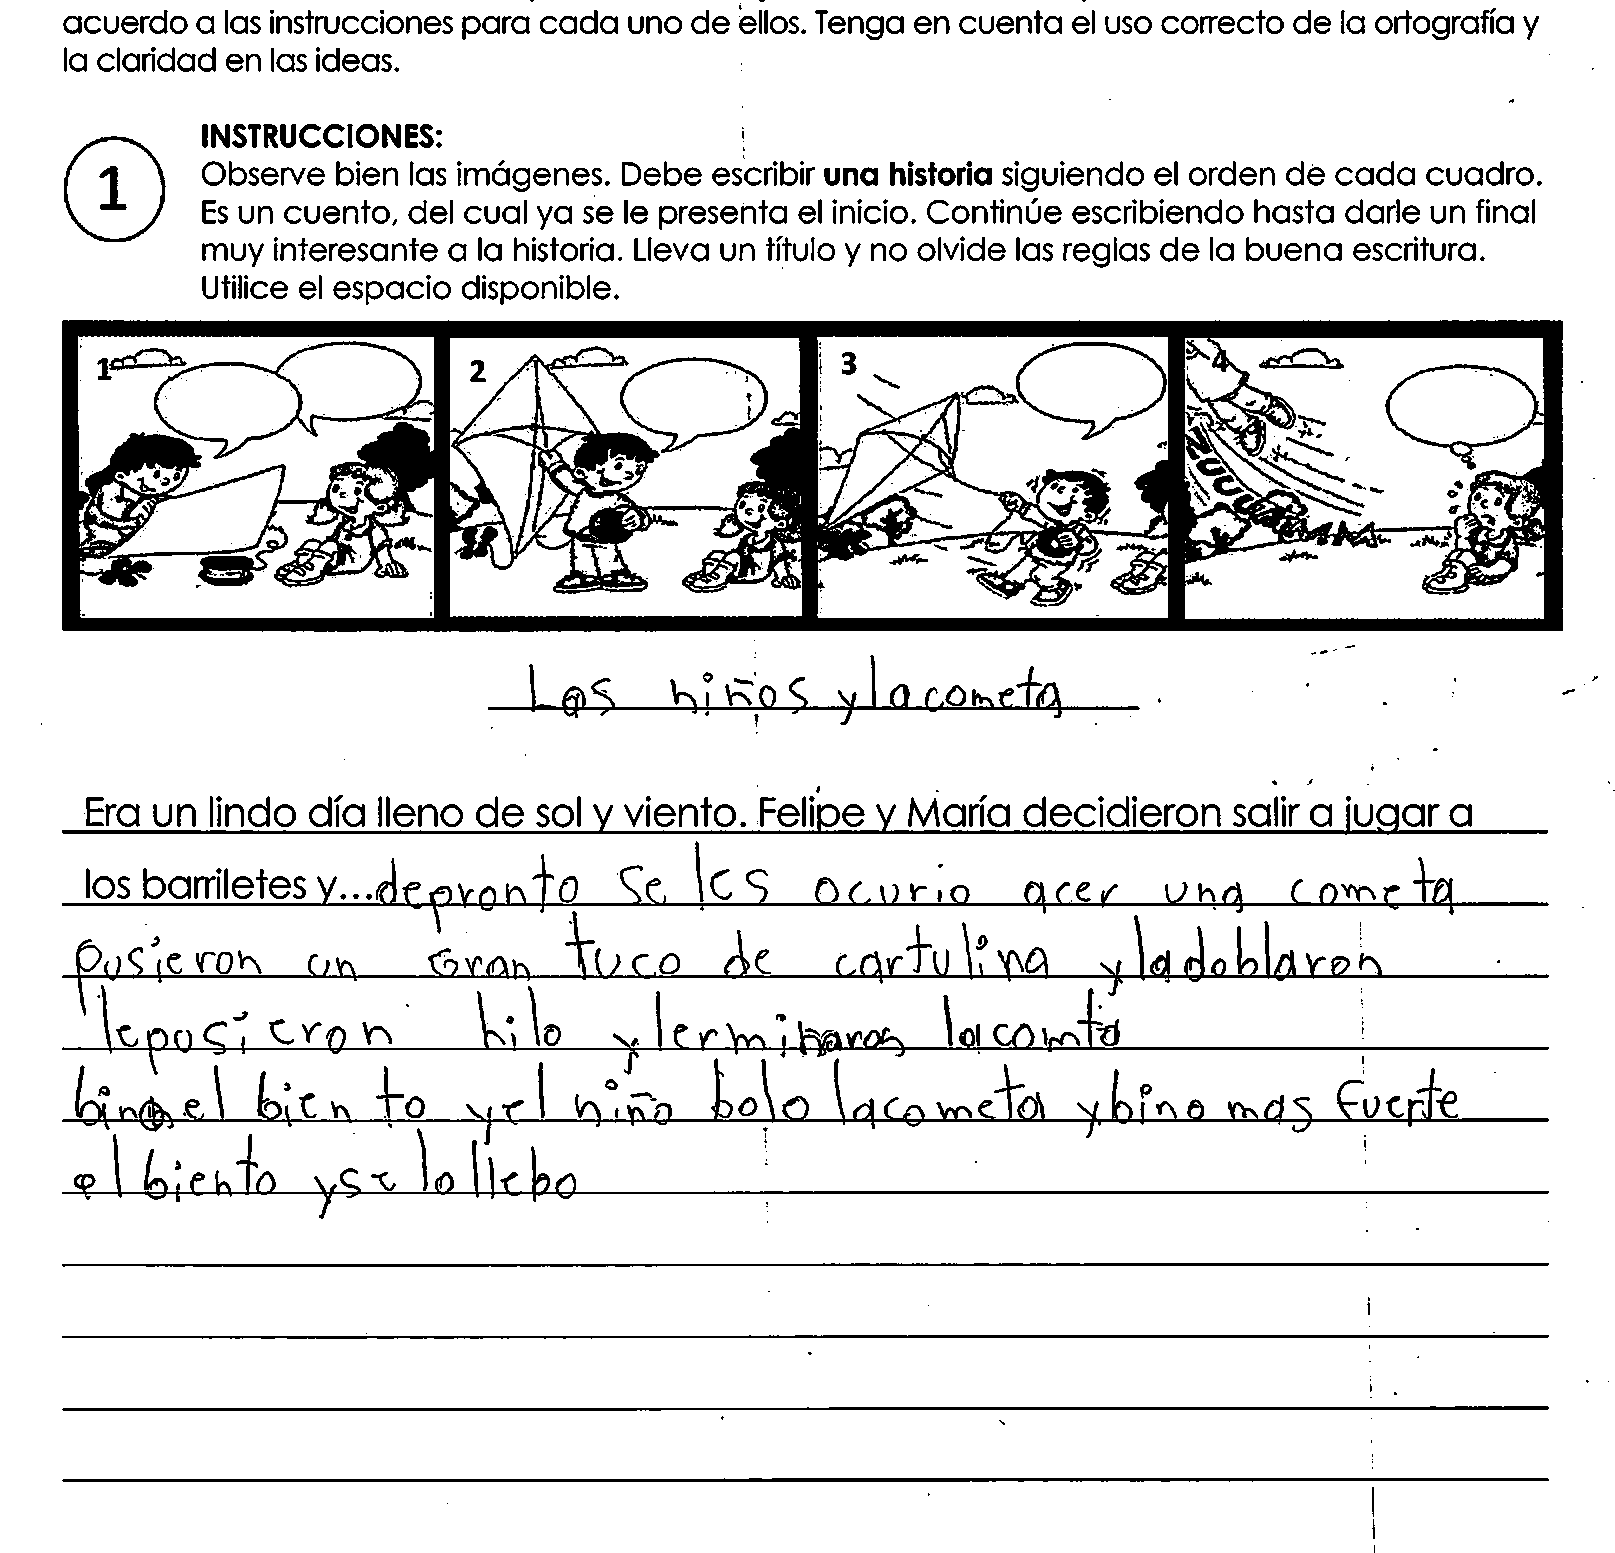 acuerdo a las instrucciones para cada uno de ellos. Tenga en cuenta el uso correcto de la ortografía y
la claridad en las ideas.
1
INSTRUCCIONES:
Observe bien las imágenes. Debe escribir una historia siguiendo el orden de cada cuadro.
Es un cuento, del cual ya se le presenta el inicio. Continúe escribiendo hasta darle un final
muy interesante a la historia. Lleva un título y no olvide las reglas de la buena escritura.
Utilice el espacio disponible.
1 2 3 4
ZUUUM
Los niños y la cometa
Era un lindo día lleno de sol y viento. Felipe y María decidieron salir a jugar a
los barriletes y...depronto se les ocurio acer una cometa
pusieron un Gran tuco de cartulina y la doblaron
le pusieron hilo y lerminaron la comta
bino el biento y el niño bolo la cometa y bino mas fuerte
el biento y se lo llebo